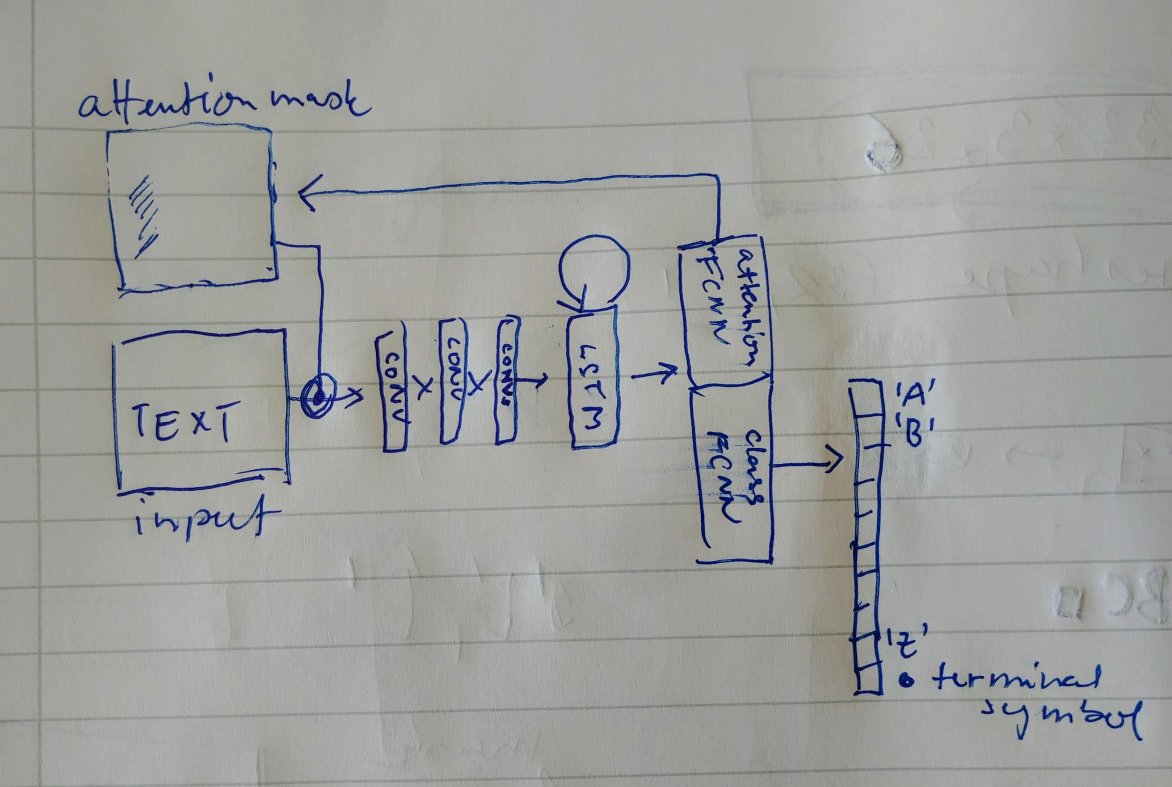 attention mask
TEXT
input
CONV
CONV
CONV
LSTM
attention
FCNN
class
FCNN
'A'
'B'
'Z'
terminal
symbol